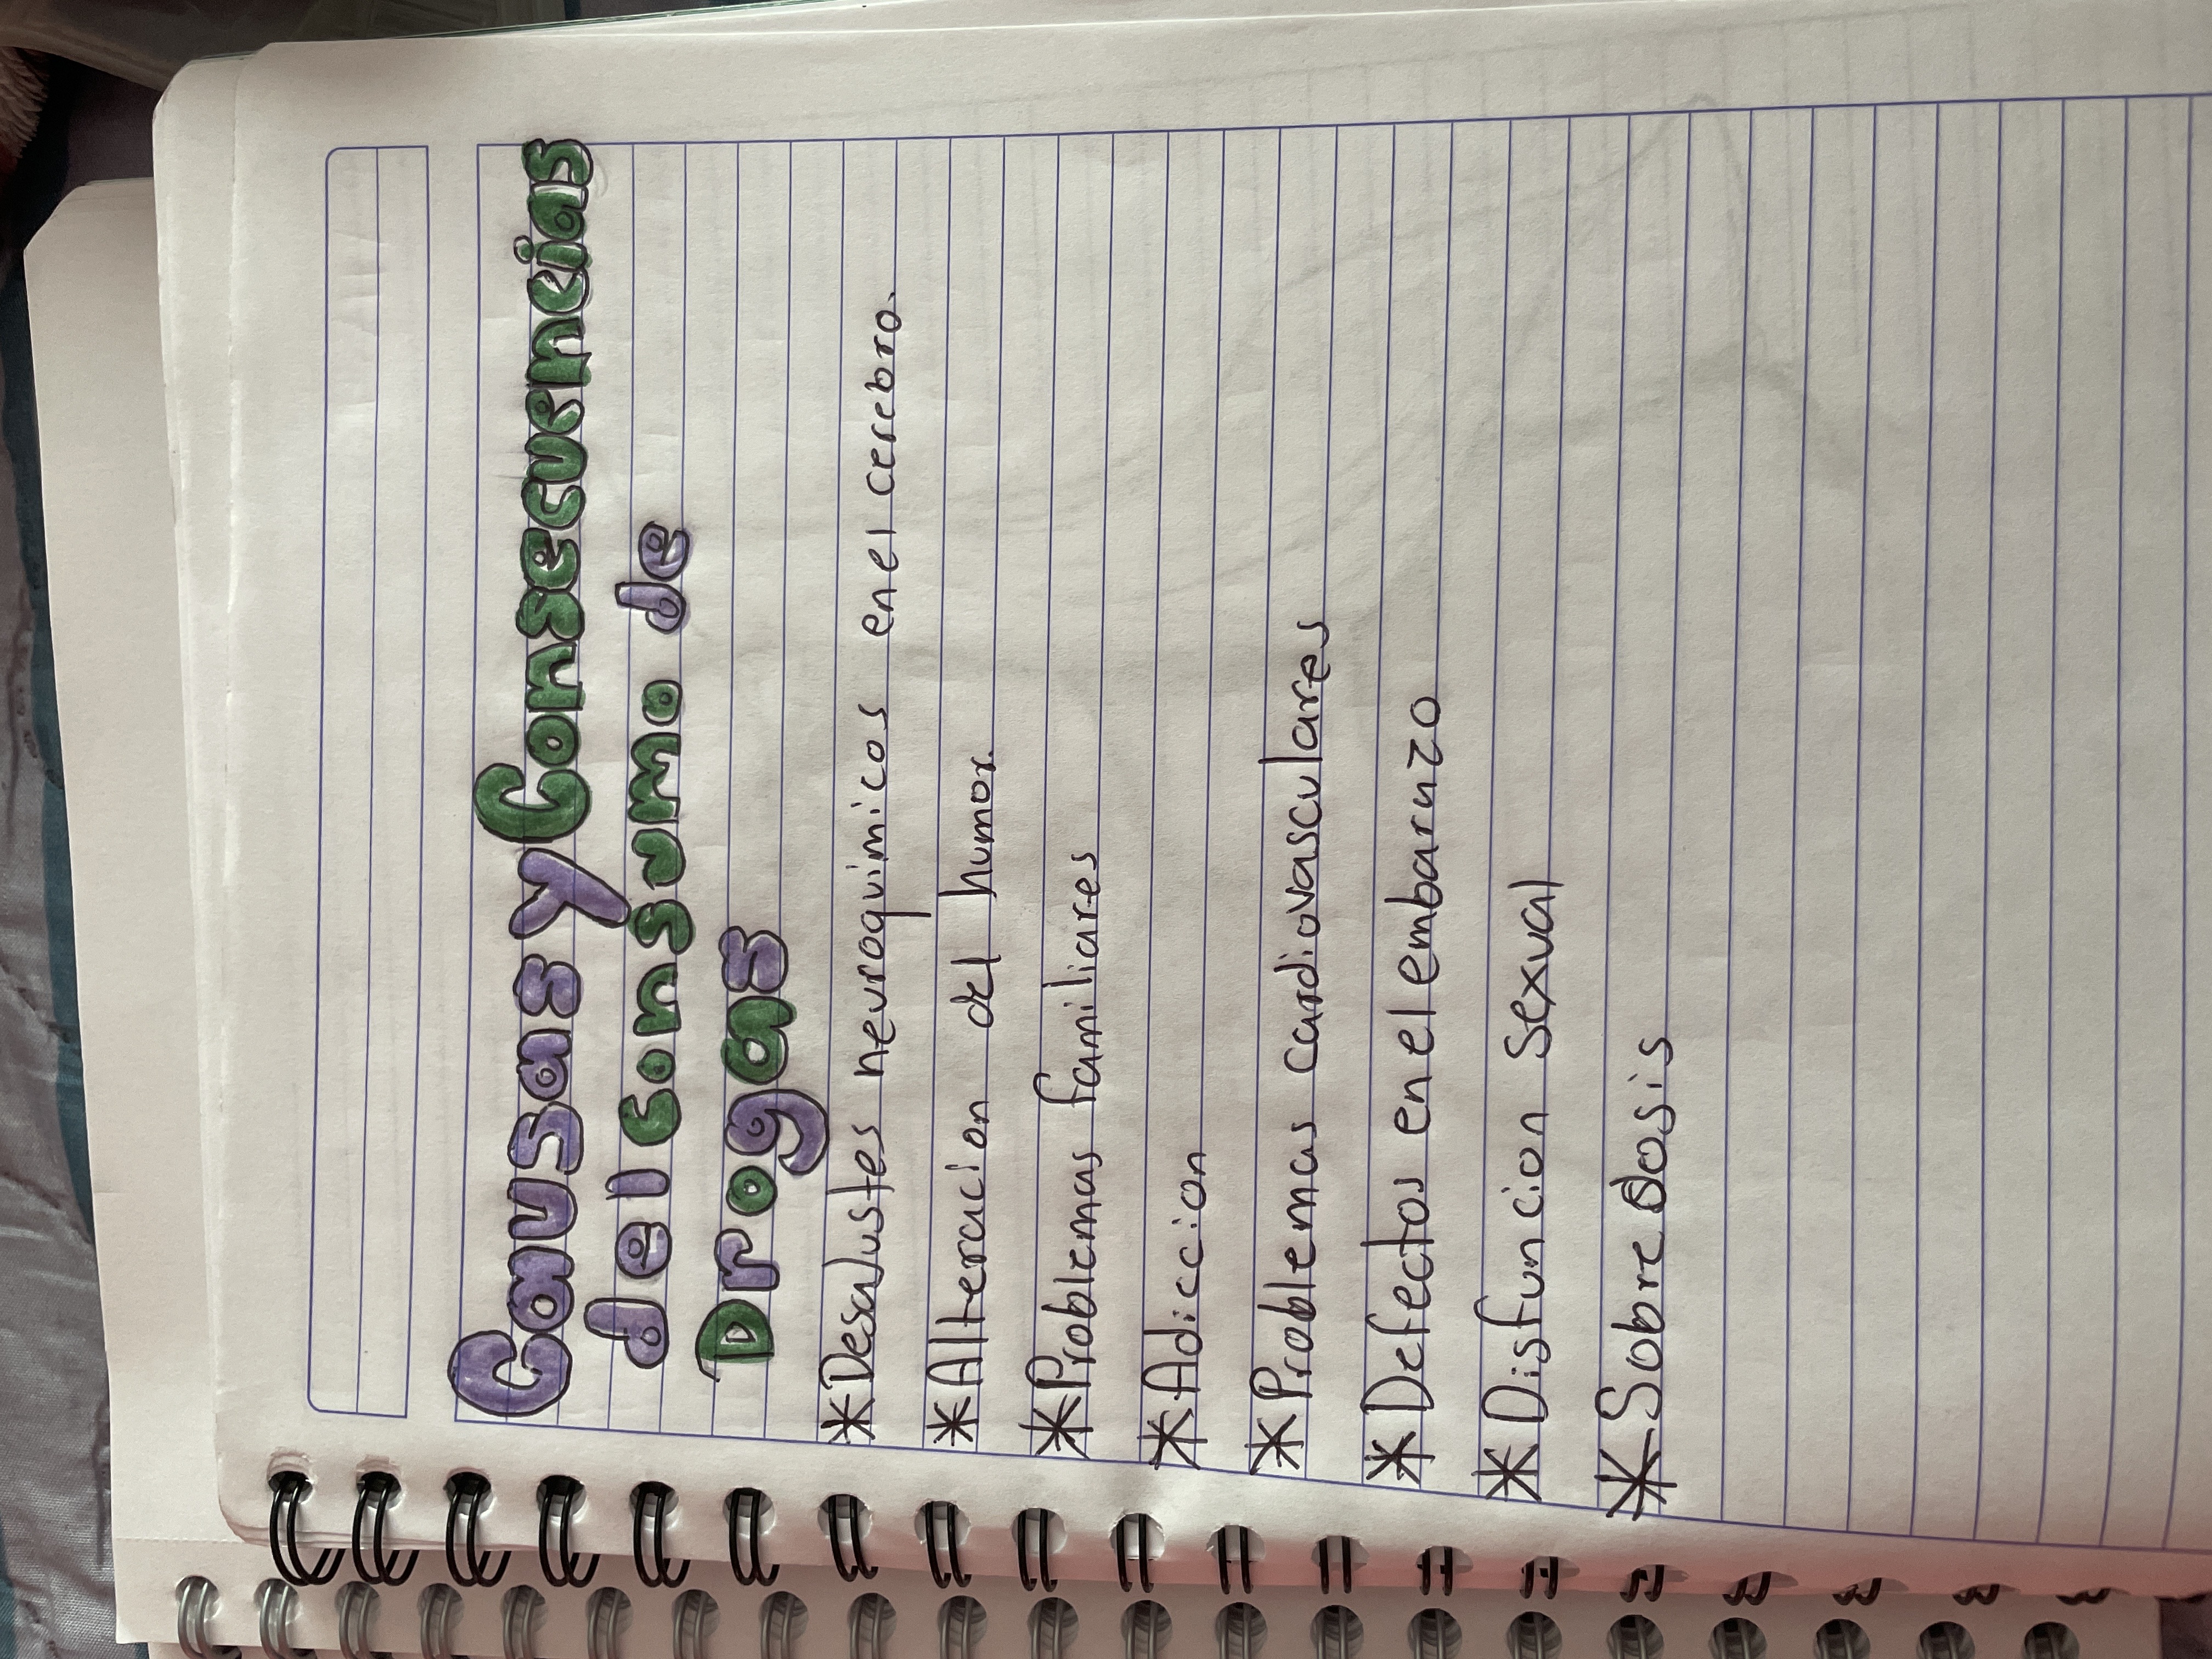 Causas y Consecuencias
del consumo de
Drogas
*Desajustes neuroquimicos en el cerebro.
*Alteracion del humor.
*Problemas familiares
*Adiccion
*Problemas cardiovasculares
*Defectos en el embarazo
*Disfuncion Sexual
*Sobredosis